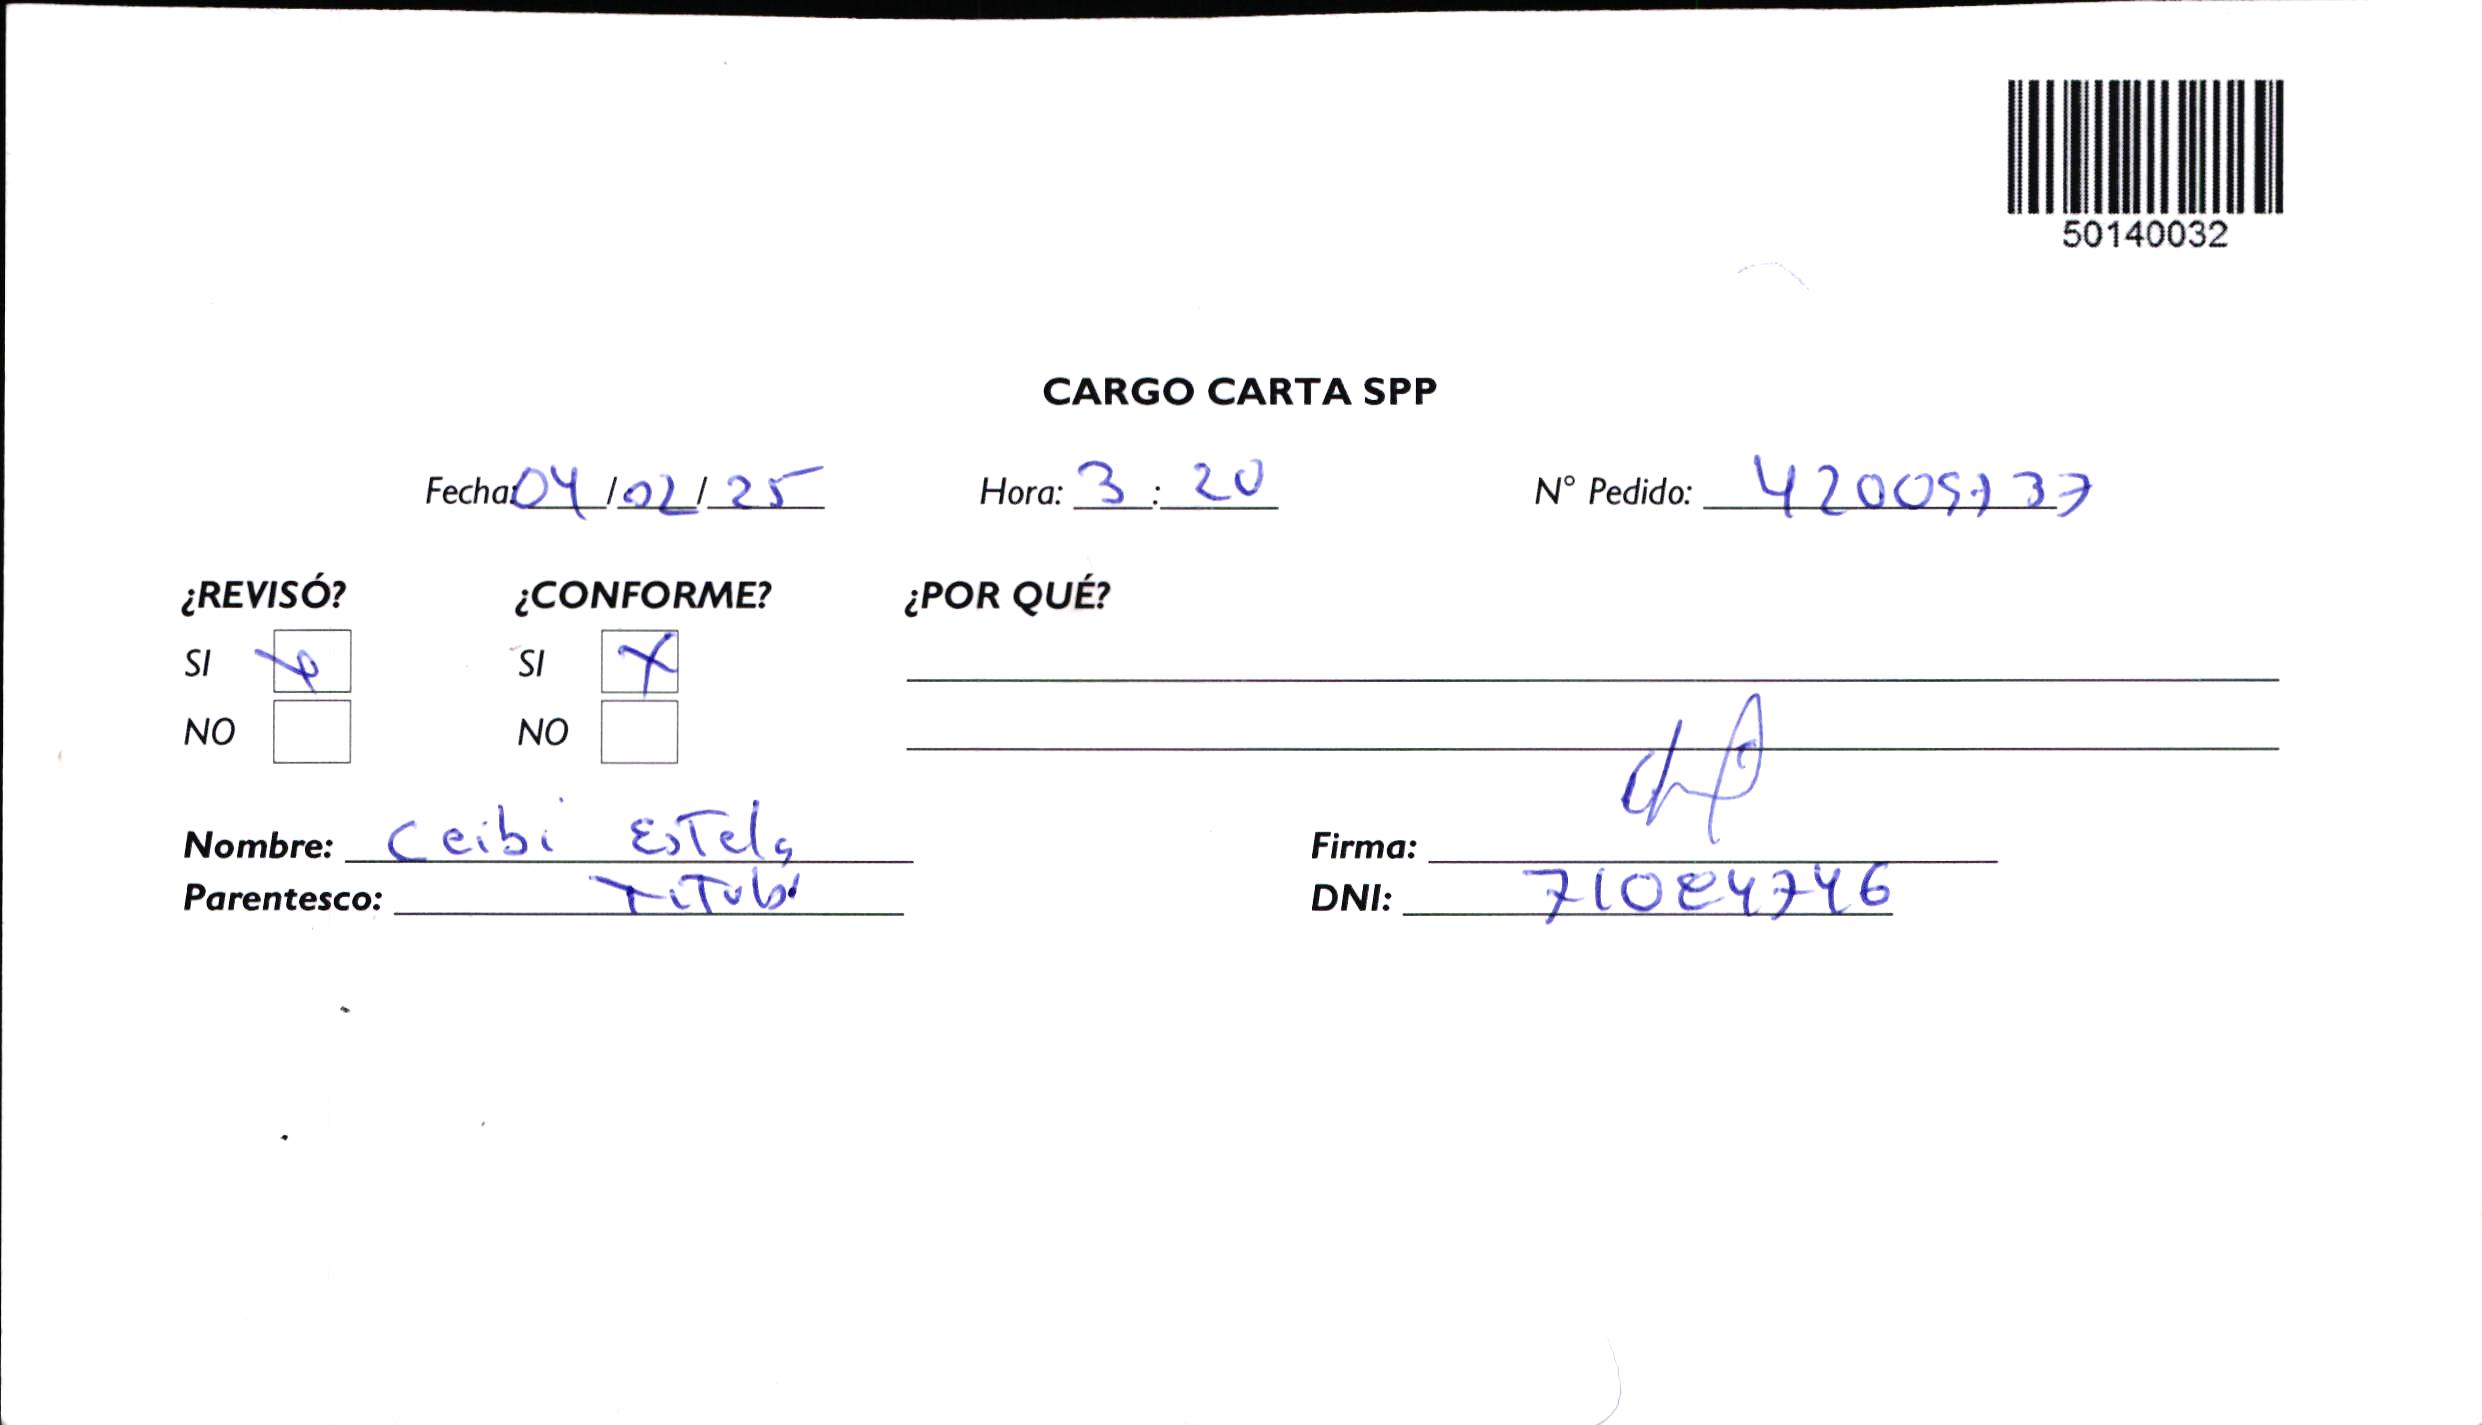 50140032
CARGO CARTA SPP
Fecha: 04/02/25 Hora: 3:20 N° Pedido: 42005737
¿REVISÓ? ¿CONFORME? ¿POR QUÉ?
SI X SI X
NO NO
Nombre: Ceibi Estela Firma:
Parentesco: Titular DNI: 71084746